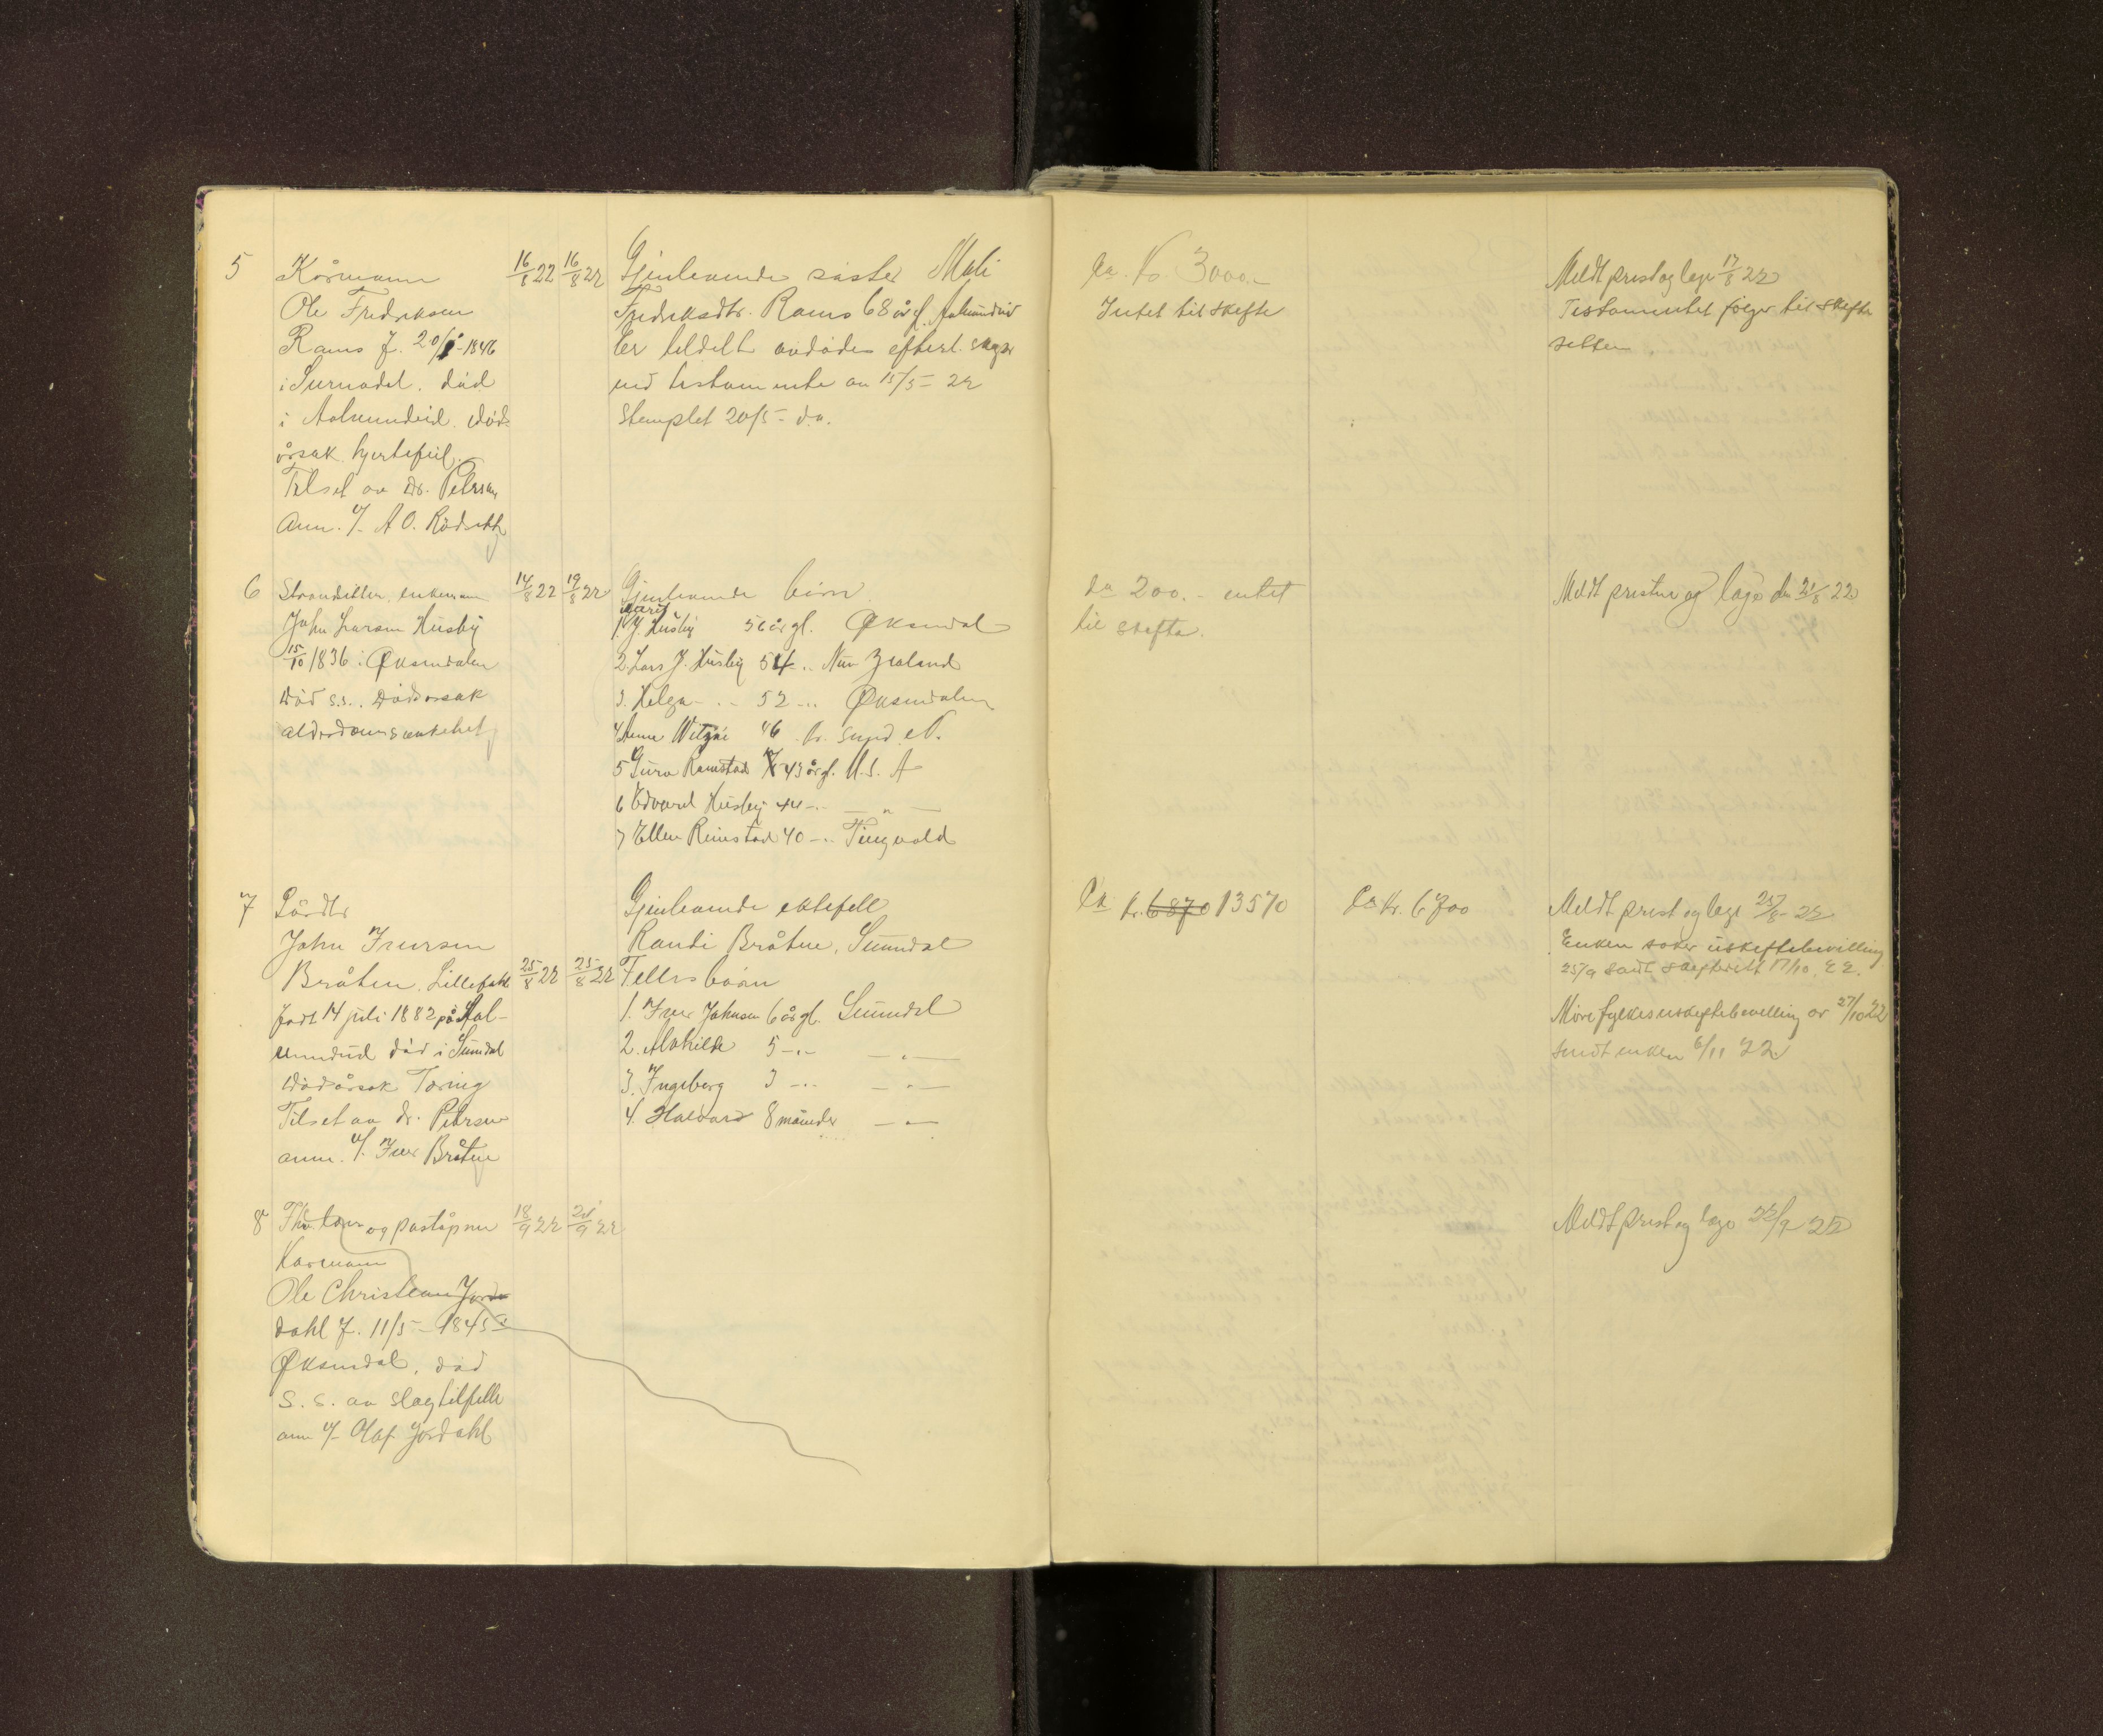 5 Kårmann 16/8 22 16/8 22
Ole Fredriksen
Rams f. 20/5-1846
i Surnadal. død
i Aalvundeid. Døds
årsak hjertefeil.
Tilset av Dr. Petersen
Anm. v/ A O. Rødseth
Gjenlevende søster Mali
Fredriksdtr. Rams 68 år gl. Aalvundeid
Er tildelt avdødes efterl. sager
ved testamente av 15/5- 22
Stemplet 20/5- d.a.
ca. kr. 3000.-
Intet til skifte
Meldt prest og læge 17/8 22
Testamentet følger til skifte
retten.
6 Strandsitter enkeman 14/8 22 19/8 22
John Larsen Husby
15/10 1836 i Øksendalen
Død s.s.. Dødsorsak
alderdomssvakehet
Gjenlevende børn
Marit
1. J. Husby 56 år gl. Øksendal
2. Lars J. Husby 54 -.. New Zealand
3. Helga - .. - 52 -.. Øksendalen
4 Anne Witzøe 46 Kr. sund. N.
5 Guro Ramstad 43 år gl. U. S. A
6 Edvard Husby 44 -.. — " —
7 Ellen Reinstad 40 -.. Tingvold
ca 200.- intet
til skifte.
Meldt presten og læge den 21/8 22
7 Gårdbr
John Iversen
Bråten. Lillefale 25/8 22 25/8 22
født 14 juli 1882 på Aal-
vundeid død i Sunndal
Dødsårsak Tæring
Tilset av dr. Petersen
anm. v/. Iver Bråten
Gjenlevende ektefell
Randi Bråten, Sunndal
Fellesbørn
1. Iver Johnsen 6 år gl. Sunndal
2. Mathilde 5 -.. — " —
3. Ingeborg 3 -.. — " —
4. Halvard 8 måneder — " —
Ca kr. 6870 13570
Ca kr. 6700
Meldt prest og læge 25/8- 22
Enken søker uskiftebevilling
25/9 sendt skifterett 17/10. 22.
Møre fylkes uskiftebevilling av 27/10 22
sendt enken 6/11 22
8 Fhv. lærer og poståpner 18/9 22 21/9 22
Kårmann
Ole Christian Jor-
dahl f. 11/5- 1845 i
Øksendal, død
s. s. av slagtilfelle
anm v/- Olaf Jordahl
Meldt prest og læge 22/9 22